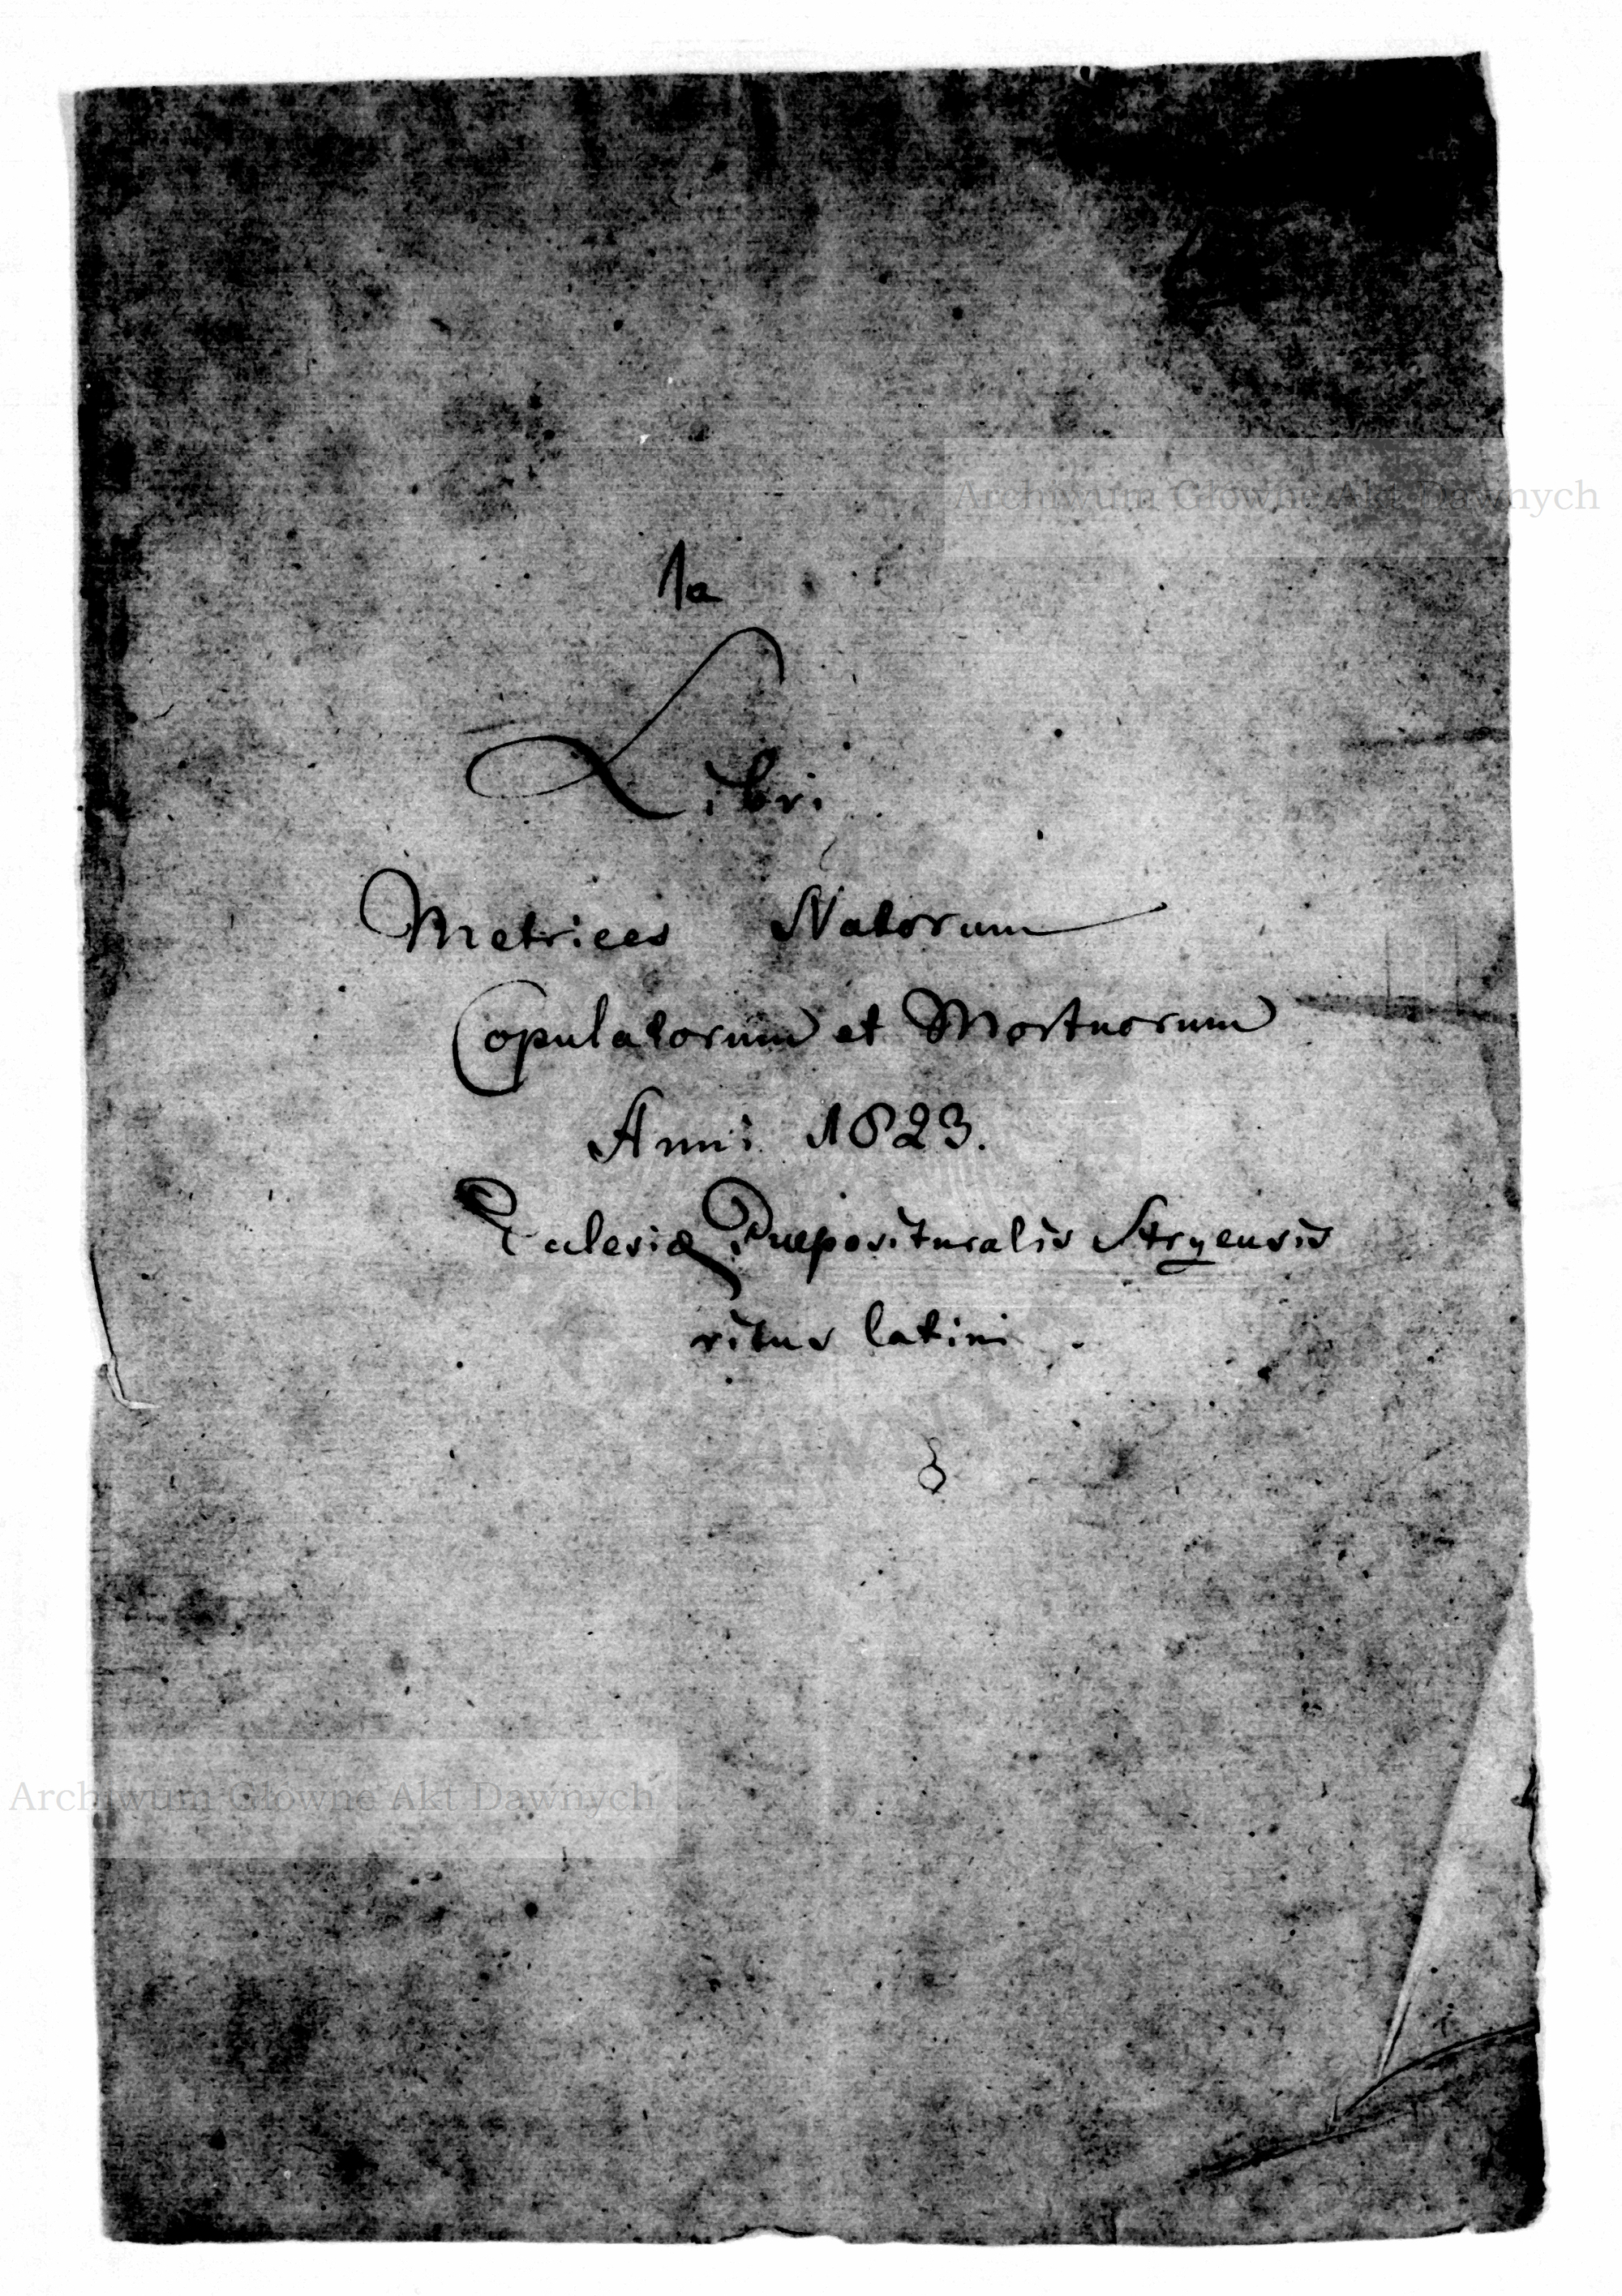 1a
Libri
Metrices Natorum
Copulatorum et Mortuorum
Anni 1823.
Ecclesiæ Præposituralis Stryensis
ritus latini.
Archiwum Glowne Akt Dawnych
Archiwum Glowne Akt Dawnych